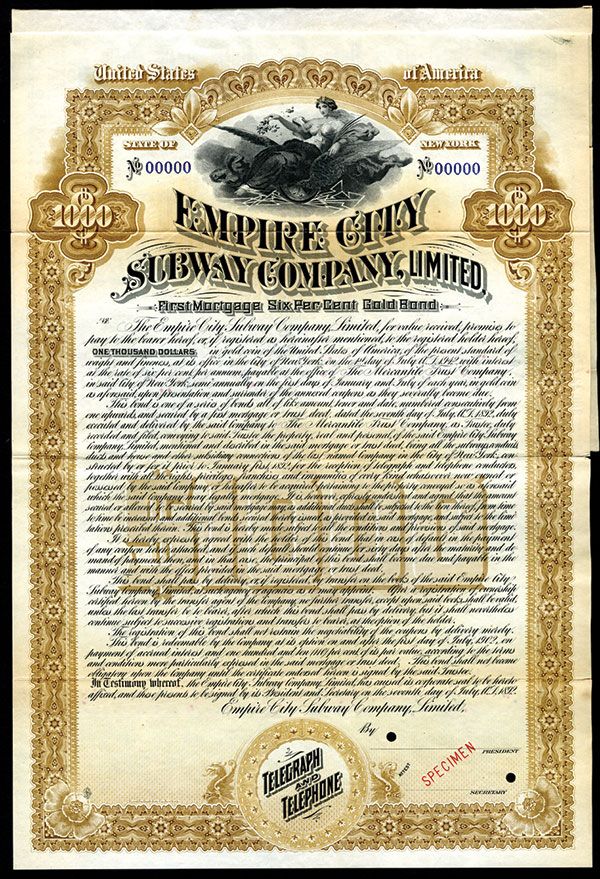 United States of America
STATE OF NEW YORK
No 00000 No 00000
1000 1000
EMPIRE CITY
SUBWAY COMPANY, LIMITED,
First Mortgage Six Per Cent Gold Bond
The Empire City Subway Company, Limited, for value received, promises to
pay to the bearer hereof, or, if registered as hereinafter mentioned, to the registered holder hereof,
ONE THOUSAND DOLLARS in gold coin of the United States of America, of the present standard of
weight and fineness, at its office in the City of New York, on the 1st day of July A.D. 1912 with interest
at the rate of six per cent per annum, payable at the office of The Mercantile Trust Company,
in said City of New York, semi-annually on the first days of January and July of each year, in gold coin
as aforesaid, upon presentation and surrender of the annexed coupons as they severally become due.
This bond is one of a series of bonds all of like amount, tenor and date, numbered consecutively from
one upwards, and secured by a first mortgage or trust deed, dated the seventh day of July, A.D. 1892, duly
executed and delivered by the said Company to The Mercantile Trust Company, as Trustee, duly
recorded and filed, conveying to said Trustee the property, real and personal, of the said Empire City Subway
Company, Limited, mentioned and described in the said mortgage or trust deed, being all the subways, conduits
ducts and house and other subsidiary connections of the last named Company in the City of New York, con-
structed by or for it prior to January first, 1892, for the reception of telegraph and telephone conductors,
together with all the rights, privileges, franchises and immunities of every kind whatsoever now owned or
possessed by the said Company or belonging to or acquired
which the said Company may legally mortgage. It is, however, expressly understood and agreed that the amount
secured or allowed
to time be increased and additional bonds secured hereby issued, as provided in said mortgage, and subject to the limi-
tations prescribed therein. This bond is by this made subject to all the conditions and provisions of said mortgage.
It is hereby expressly agreed with the holder of this bond that in case of default in the payment
of any coupon hereto attached, and if such default should continue for sixty days after its maturity and de-
mand of payment thereof, then, and in that case, the principal of this bond shall become due and payable in the
manner and with the effect provided in the said mortgage or trust deed.
This bond shall pass by delivery, or, if registered, by transfer on the books of the said Empire City
Subway Company, Limited, at such agency or agencies as it may appoint. After a registration of ownership
certified hereon by the transfer agent of the Company, no further transfer, except upon said books shall be valid
unless the last transfer be to bearer, after which this bond shall pass by delivery, but it shall nevertheless
continue subject to successive registrations and transfers to bearer, at the option of the holder.
The registration of this bond shall not restrain the negotiability of the coupons by delivery merely.
This bond is redeemable by the Company at its option on and after the first day of July, 1902, on
payment of accrued interest and one hundred and ten (110) per cent. of its par value, according to the terms
and conditions more particularly expressed in the said mortgage or trust deed. This bond shall not become
obligatory upon the Company until the certificate endorsed hereon is signed by the said Trustee.
In Testimony whereof, the Empire City Subway Company, Limited, has caused its corporate seal to be hereto
affixed, and these presents to be signed by its President and Secretary on the seventh day of July, A.D. 1892.
Empire City Subway Company, Limited,
By
PRESIDENT
ATTEST
SPECIMEN
SECRETARY
TELEGRAPH
AND
TELEPHONE